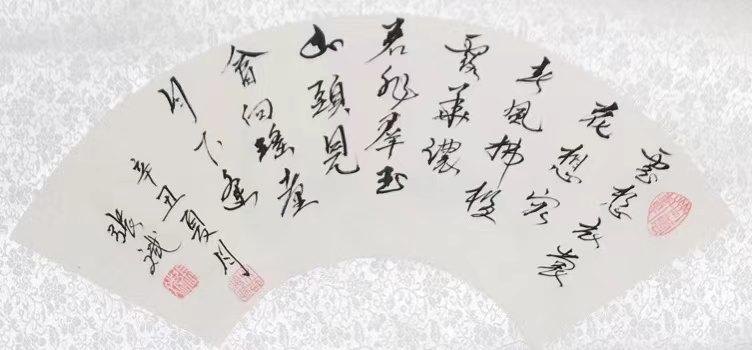 雲想衣裳
花想容
春風拂檻
露華濃
若非羣玉
山頭見
會向瑤臺
月下逢
辛丑夏月
張斌